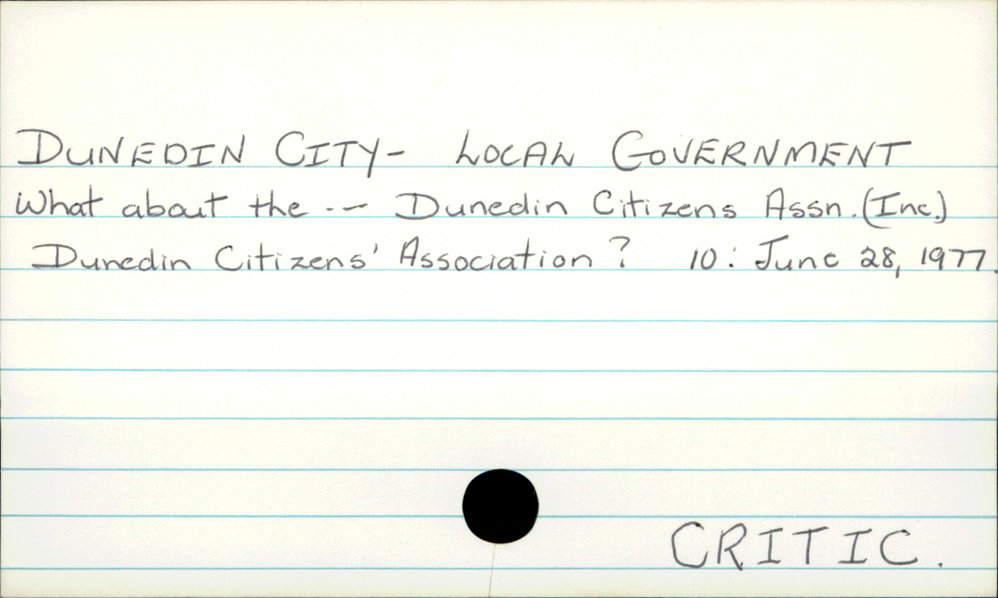 DUNEDIN CITY- LOCAL GOVERNMENT
What about the -- Dunedin Citizens Assn. (Inc.)
Dunedin Citizens' Association? 10: June 28, 1977.
CRITIC.